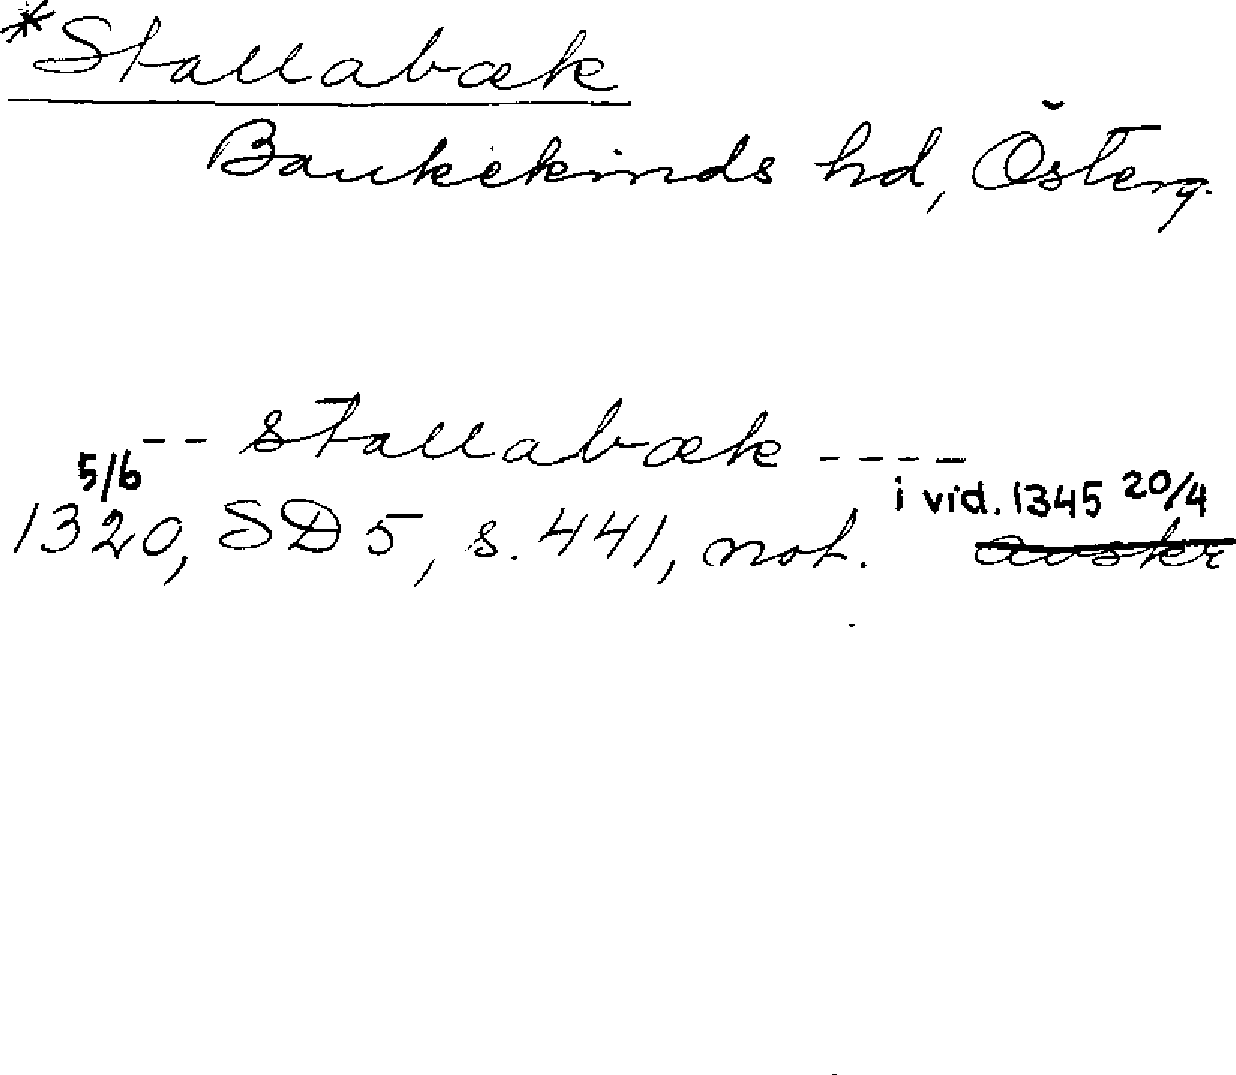 *Stallabæk
Bankekinds hd, Österg.
-- stallabæk ----
5/6 i vid. 1345 20/4
1320, SD 5, s. 441, not. avskr